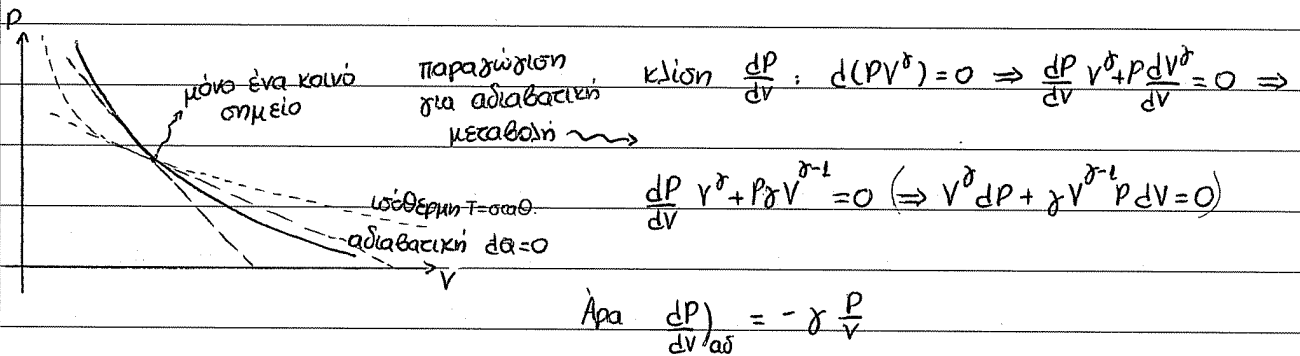 P
μόνο ένα κοινό
σημείο
παραγώγιση
για αδιαβατική
μεταβολή
κλίση dP/dV : d(PV^γ) = 0 ⇒ dP/dV V^γ + P dV^γ/dV = 0 ⇒
dP/dV V^γ + PγV^{γ-1} = 0 (⇒ V^γ dP + γV^{γ-1} P dV = 0)
ισόθερμη T=σταθ.
αδιαβατική dQ=0
V
Άρα dP/dV)_αδ = - γ P/V